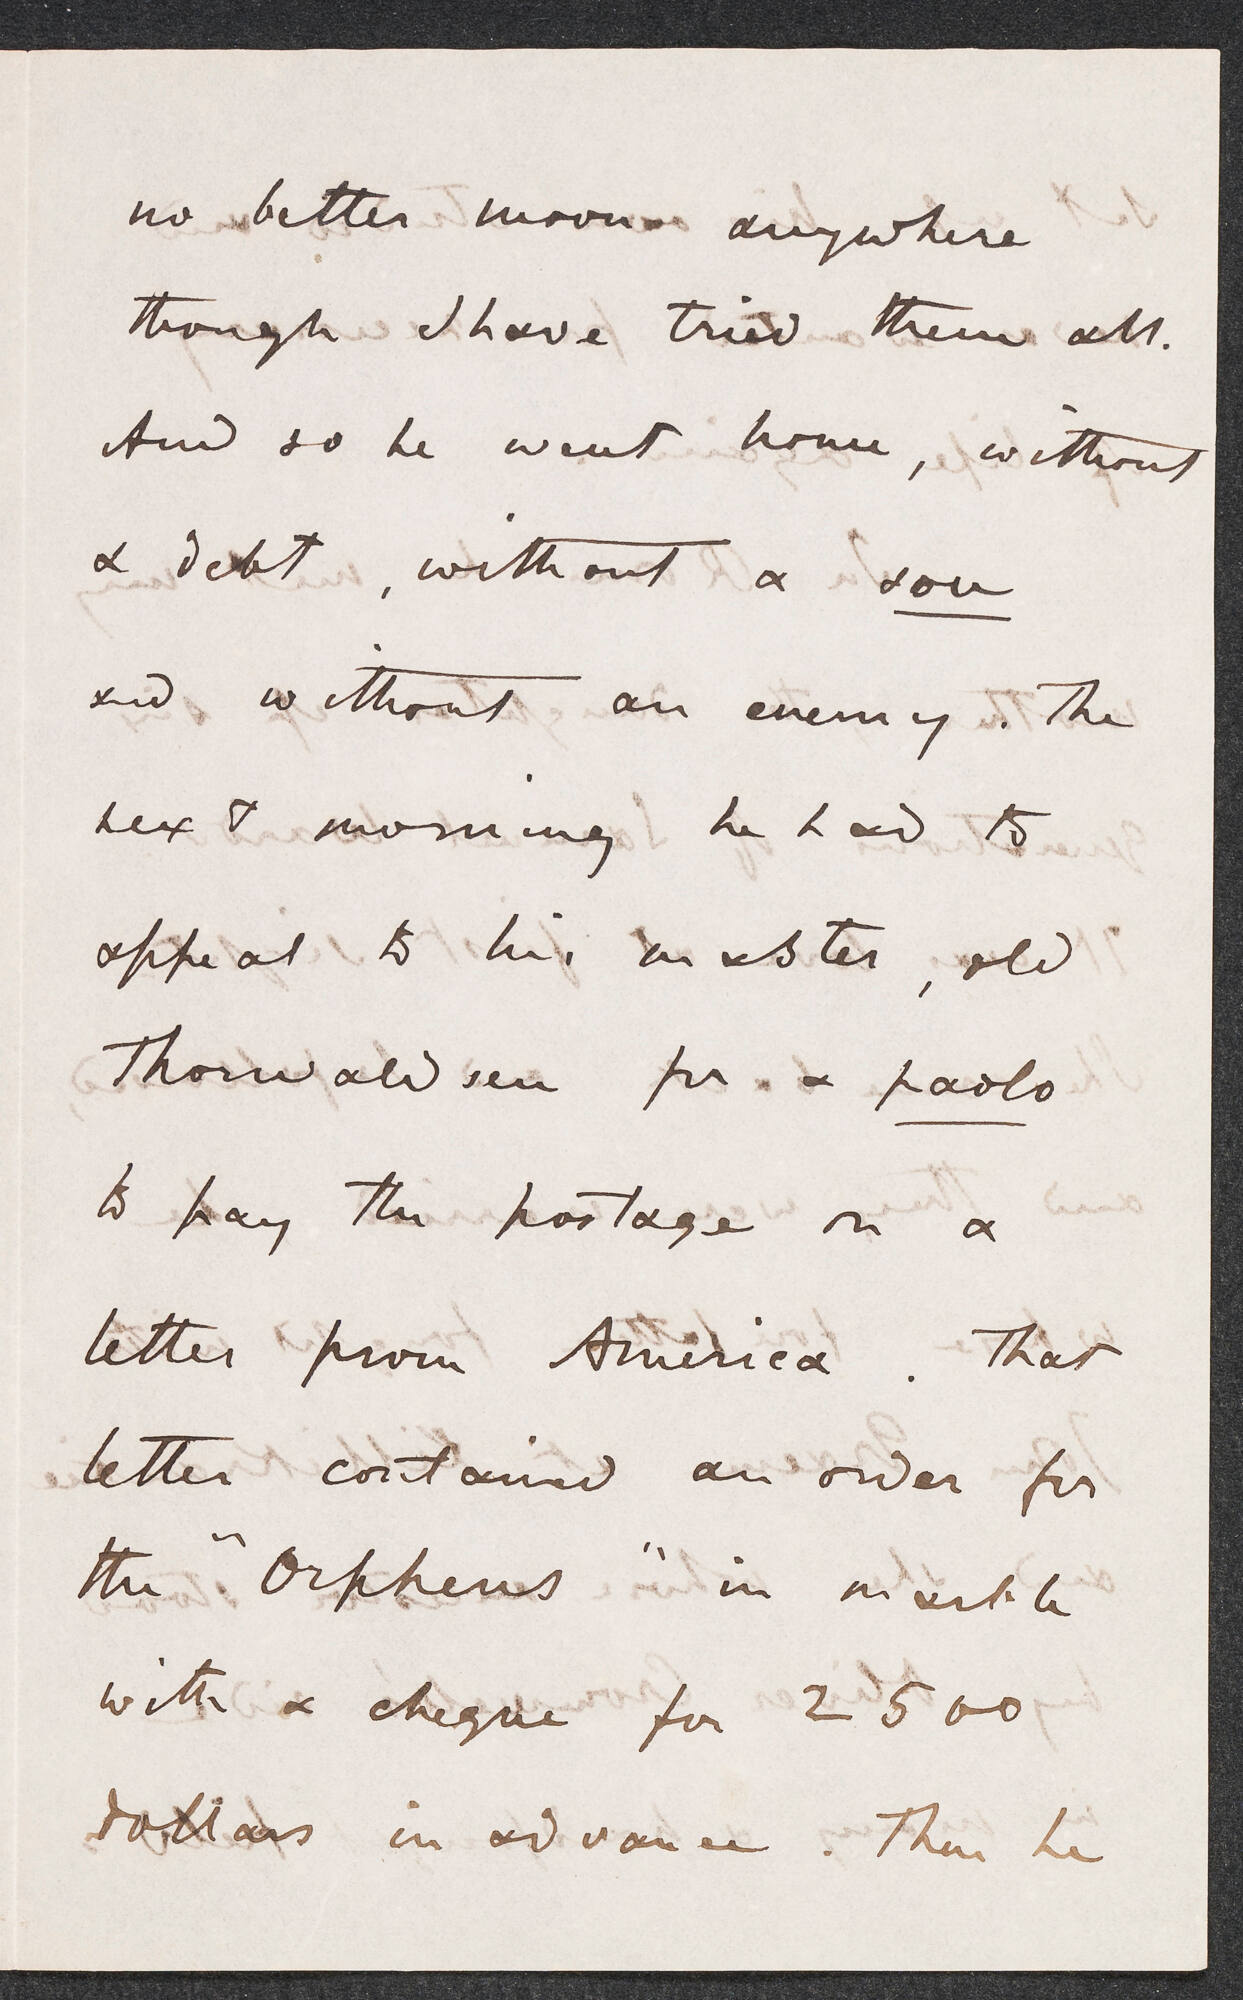 no better moon anywhere
though I have tried them all.
And so he went home, without
a debt, without a sou
and without an enemy. The
next morning he had to
appeal to his master, old
Thorwaldsen for a paolo
to pay the postage on a
letter from America. That
letter contained an order for
the "Orpheus" in marble
with a cheque for 2500
dollars in advance. Then he